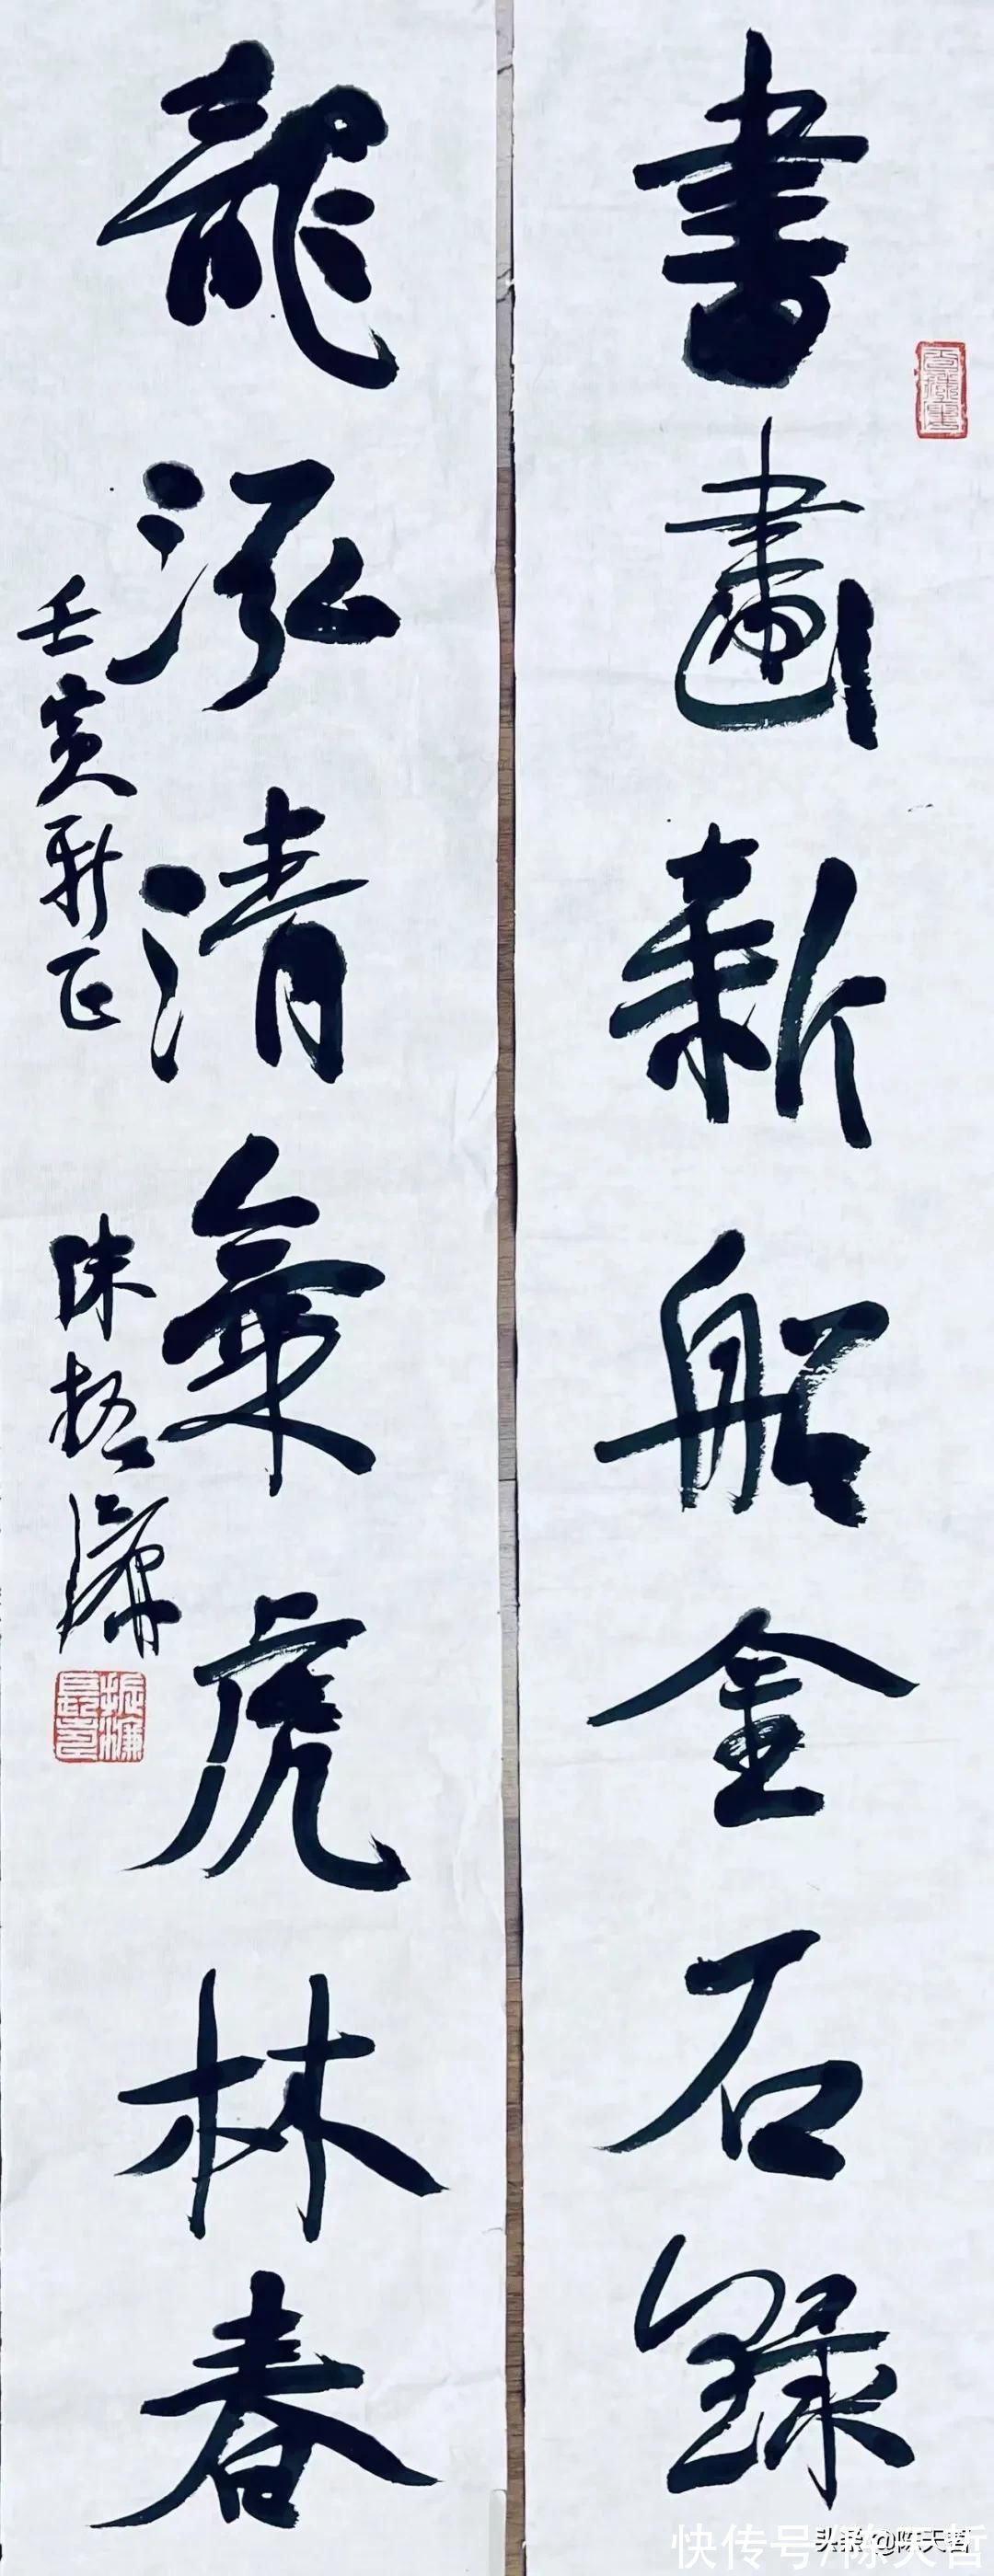 書畫新船金石錄
龍泓清氣虎林春
壬寅新正
陳振濂
快传号/陈天哲
头条 @陈天哲